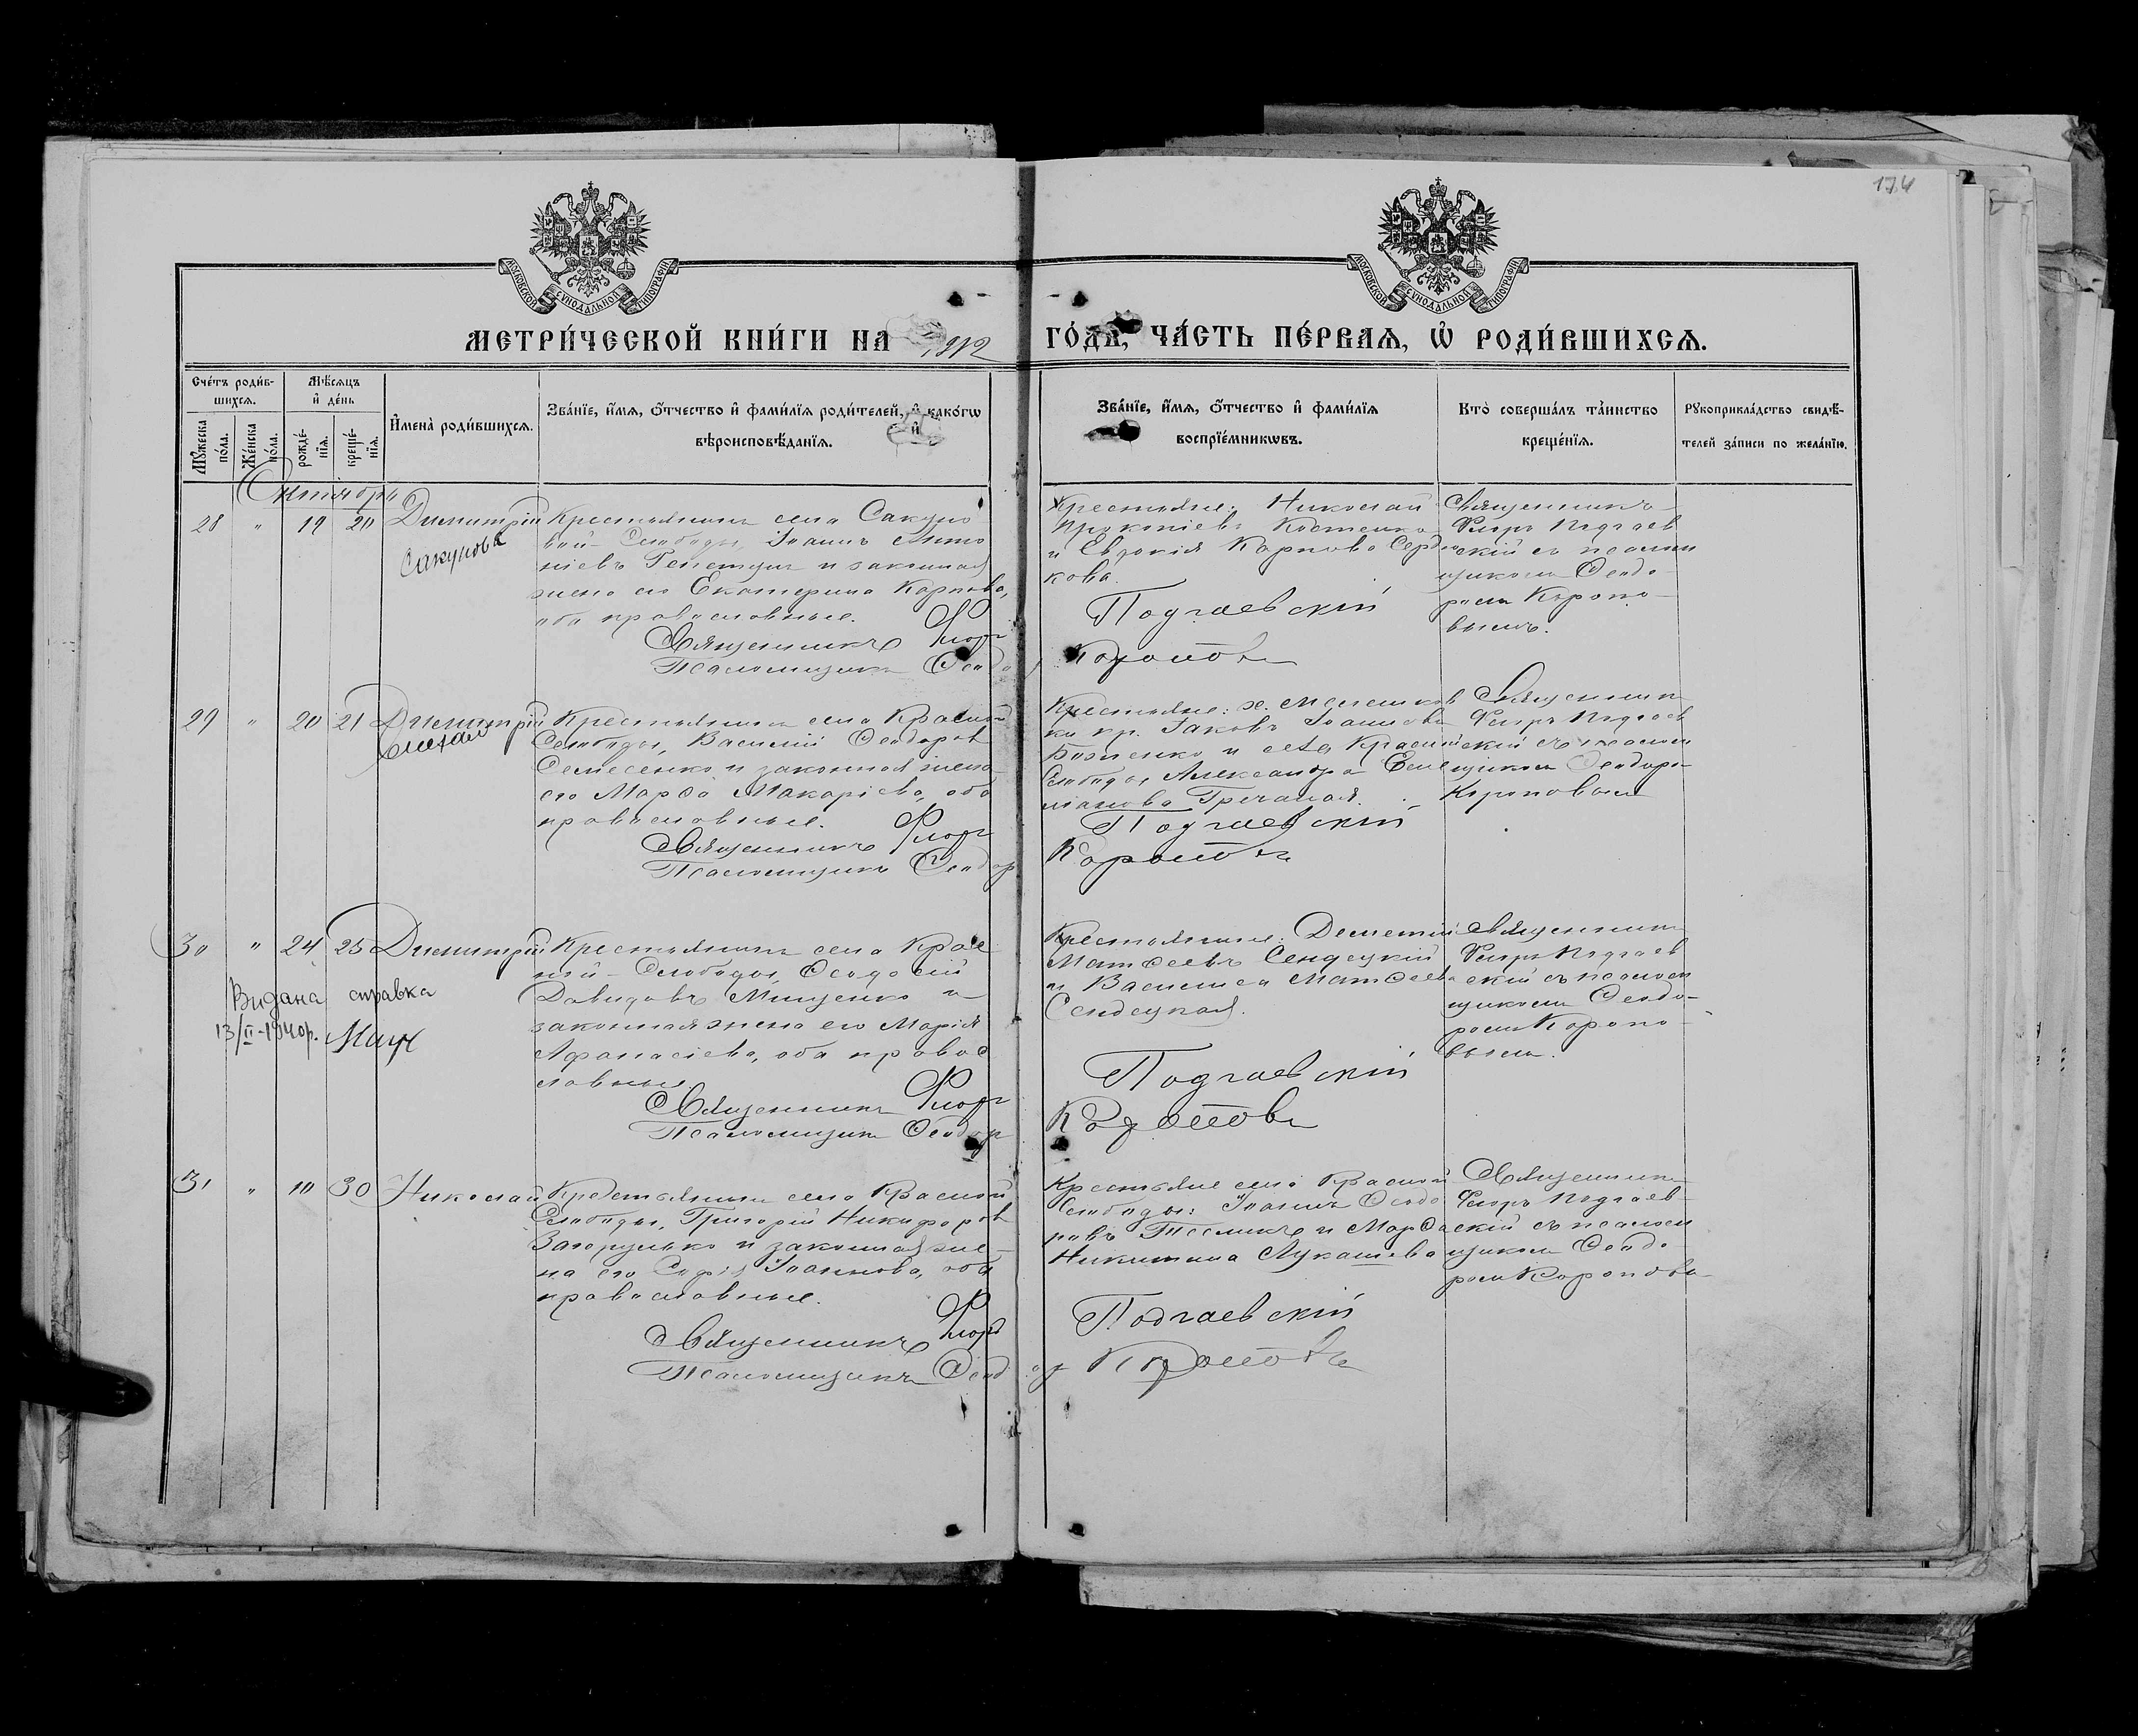 174
МОСКОВСКОЙ СѴНОДАЛЬНОЙ ТИПОГРАФІИ
МОСКОВСКОЙ СѴНОДАЛЬНОЙ ТИПОГРАФІИ
МЕТРИ́ЧЕСКОЙ КНИ́ГИ НА 1912 ГО́ДЪ, ЧА́СТЬ ПЕ́РВАѦ, Ѡ҆ РОДИ́ВШИХСѦ.
Сче́тъ роди́в-
шихсѧ.
Мꙋ́жеска по́ла.
Же́нска по́ла.
Мѣ́сѧцъ
и҆ де́нь
рожде́-
нїѧ.
креще́-
нїѧ.
И҆мена̀ роди́вшихсѧ.
Зва́нїе, и҆́мѧ, ѻ҆́тчество и҆ фами́лїѧ роди́телей, и҆ како́гѡ
вѣроисповѣ́данїѧ.
Зва́нїе, и҆́мѧ, ѻ҆́тчество и҆ фами́лїѧ
воспрїе́мникѡвъ.
Кто̀ соверша́лъ та́инство
креще́нїѧ.
Рꙋкоприкла́дство свидѣ́-
телей за́писи по жела́нїю.
Октябрь
28 " 19 20 Димитрій
Сакунова
Крестьянинъ села Сакуно
вой-Слободы, Іоаннъ Анто
ніевъ и законная
жена его Екатерина Карпова,
оба православные.
Священникъ Флоръ
Псаломщикъ Ѳеодо
Крестьяне: Николай
Прокопіевъ Костенко
и Евдокія Карпова Серди
кова.
Подгаевскій
Коропов
Священникъ
Флоръ Подгаев
скій съ псалом
щикомъ Ѳеодо-
ромъ Коропо-
вымъ.
29 " 20 21 Димитрій
Крестьянинъ села Красной
Слободы, Василій Ѳеодоров
Семесенко и законная жена
его Марѳа Макаріева, оба
православные.
Священникъ Флоръ
Псаломщикъ Ѳеодор
Крестьяне: х.
Іаковъ Іоаннов
Божненко и села Красной
Слободы Александра Еме
Гречаная.
Подгаевскій
Коропов
Священник
Флоръ Подгаев
скій съ псалом
щикомъ Ѳеодоро
Короповым
30 " 24 25 Димитрій
Видана справка
13/II-1940р.
Крестьянинъ села Крас
ной-Слободы, Ѳеодосій
Давидовъ Мищенко и
законная жена его Марія
Афанасіева, оба правос
лавные.
Священникъ Флоръ
Псаломщикъ Ѳеодор
Крестьяне: Дементій
Матѳеевъ Сендецкій
и Василиса Матѳеева
Сендецкая.
Подгаевскій
Коропов
Священник
Флоръ Подгаев
скій съ псалом
щикомъ Ѳеодо-
ромъ Коропо-
вым.
31 " 10 30 Николай
Крестьянинъ села Красной
Слободы, Григорій Никифоров
Загорулько и законная же-
на его Софія Іоаннова, оба
православные.
Священникъ Флор
Псаломщикъ Ѳеод
Крестьяне села Красной
Слободы: Іоаннъ Ѳеодо
ровъ Теслинъ и Марѳа
Никитина Лукашева
Подгаевскій
ор Коропов
Священник
Флоръ Подгаев
скій съ псалом
щикомъ Ѳеодо
ромъ Коропов